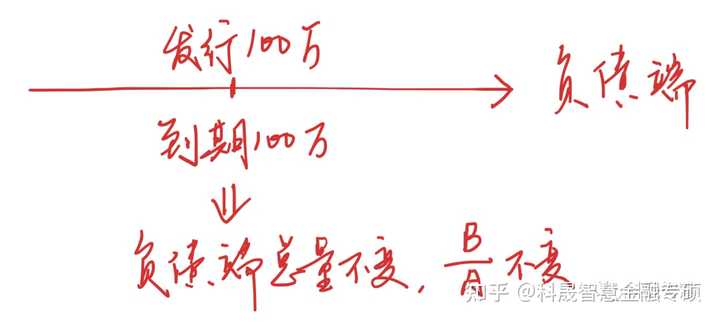 发行100万
负债端
到期100万
⇓
负债端总量不变，B/A不变
知乎 @科晟智慧金融专硕